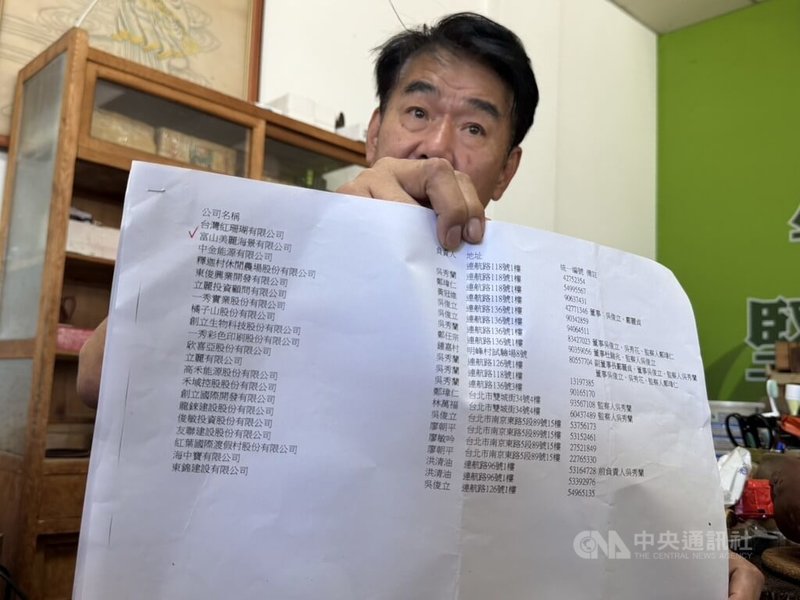 公司名稱
台灣紅珊瑚有限公司
富山美麗海景有限公司
中金能源有限公司
釋迦村休閒農場股份有限公司
東俊興業開發有限公司
立麗投資顧問有限公司
一秀實業股份有限公司
橘子山股份有限公司
創立生物科技股份有限公司
一秀彩色印刷股份有限公司
欣喜亞股份有限公司
立麗有限公司
高禾能源股份公司
禾域控股股份有限公司
創立國際開發有限公司
龍錸建設股份有限公司
俊敏投資股份有限公司
友聯建設股份有限公司
紅葉國際渡假村股份有限公司
海中寶有限公司
東錦建設有限公司
負責人 地址
吳秀蘭 連航路118號1樓
鄭瑋仁 連航路118號1樓
黃冠維 連航路118號1樓
吳俊立 連航路136號1樓
吳俊立 連航路136號1樓
吳秀蘭 連航路136號1樓
鄭任宗 連航路136號1樓
鍾嘉村 明峰村試驗場8號
吳秀蘭 連航路126號1樓
吳秀蘭 連航路118號1樓
吳秀蘭 連航路136號1樓
鄭瑋仁 台北市雙城街34號4樓
林萬福 台北市雙城街34號4樓
吳俊立 台北市南京東路5段89號15樓
廖朝平 台北市南京東路5段89號15樓
廖敏吟 台北市南京東路5段89號15樓
廖朝平 連航路96號1樓
洪清油 連航路96號1樓
洪清油 連航路126號1樓
吳俊立
統一編號 備註
42752354
54995567
90637431
42771346 董事、吳俊立、鄭麗貞
90342859
94064511
83427023 董事吳俊立、吳秀花、監察人鄭瑋仁
90359056 董事杜錦兆、監察人吳俊立
80557704 副董事長鄭麗貞、董事吳俊立、監察人吳秀蘭
董事吳俊立、吳秀花、監察人鄭瑋仁
13197385
90165170
93567108 監察人吳秀蘭
60437489 監察人吳秀蘭
53756173
53152461
27521849
22765330
53164728 前負責人吳秀蘭
53392976
54965135
中央通訊社
THE CENTRAL NEWS AGENCY
CNA